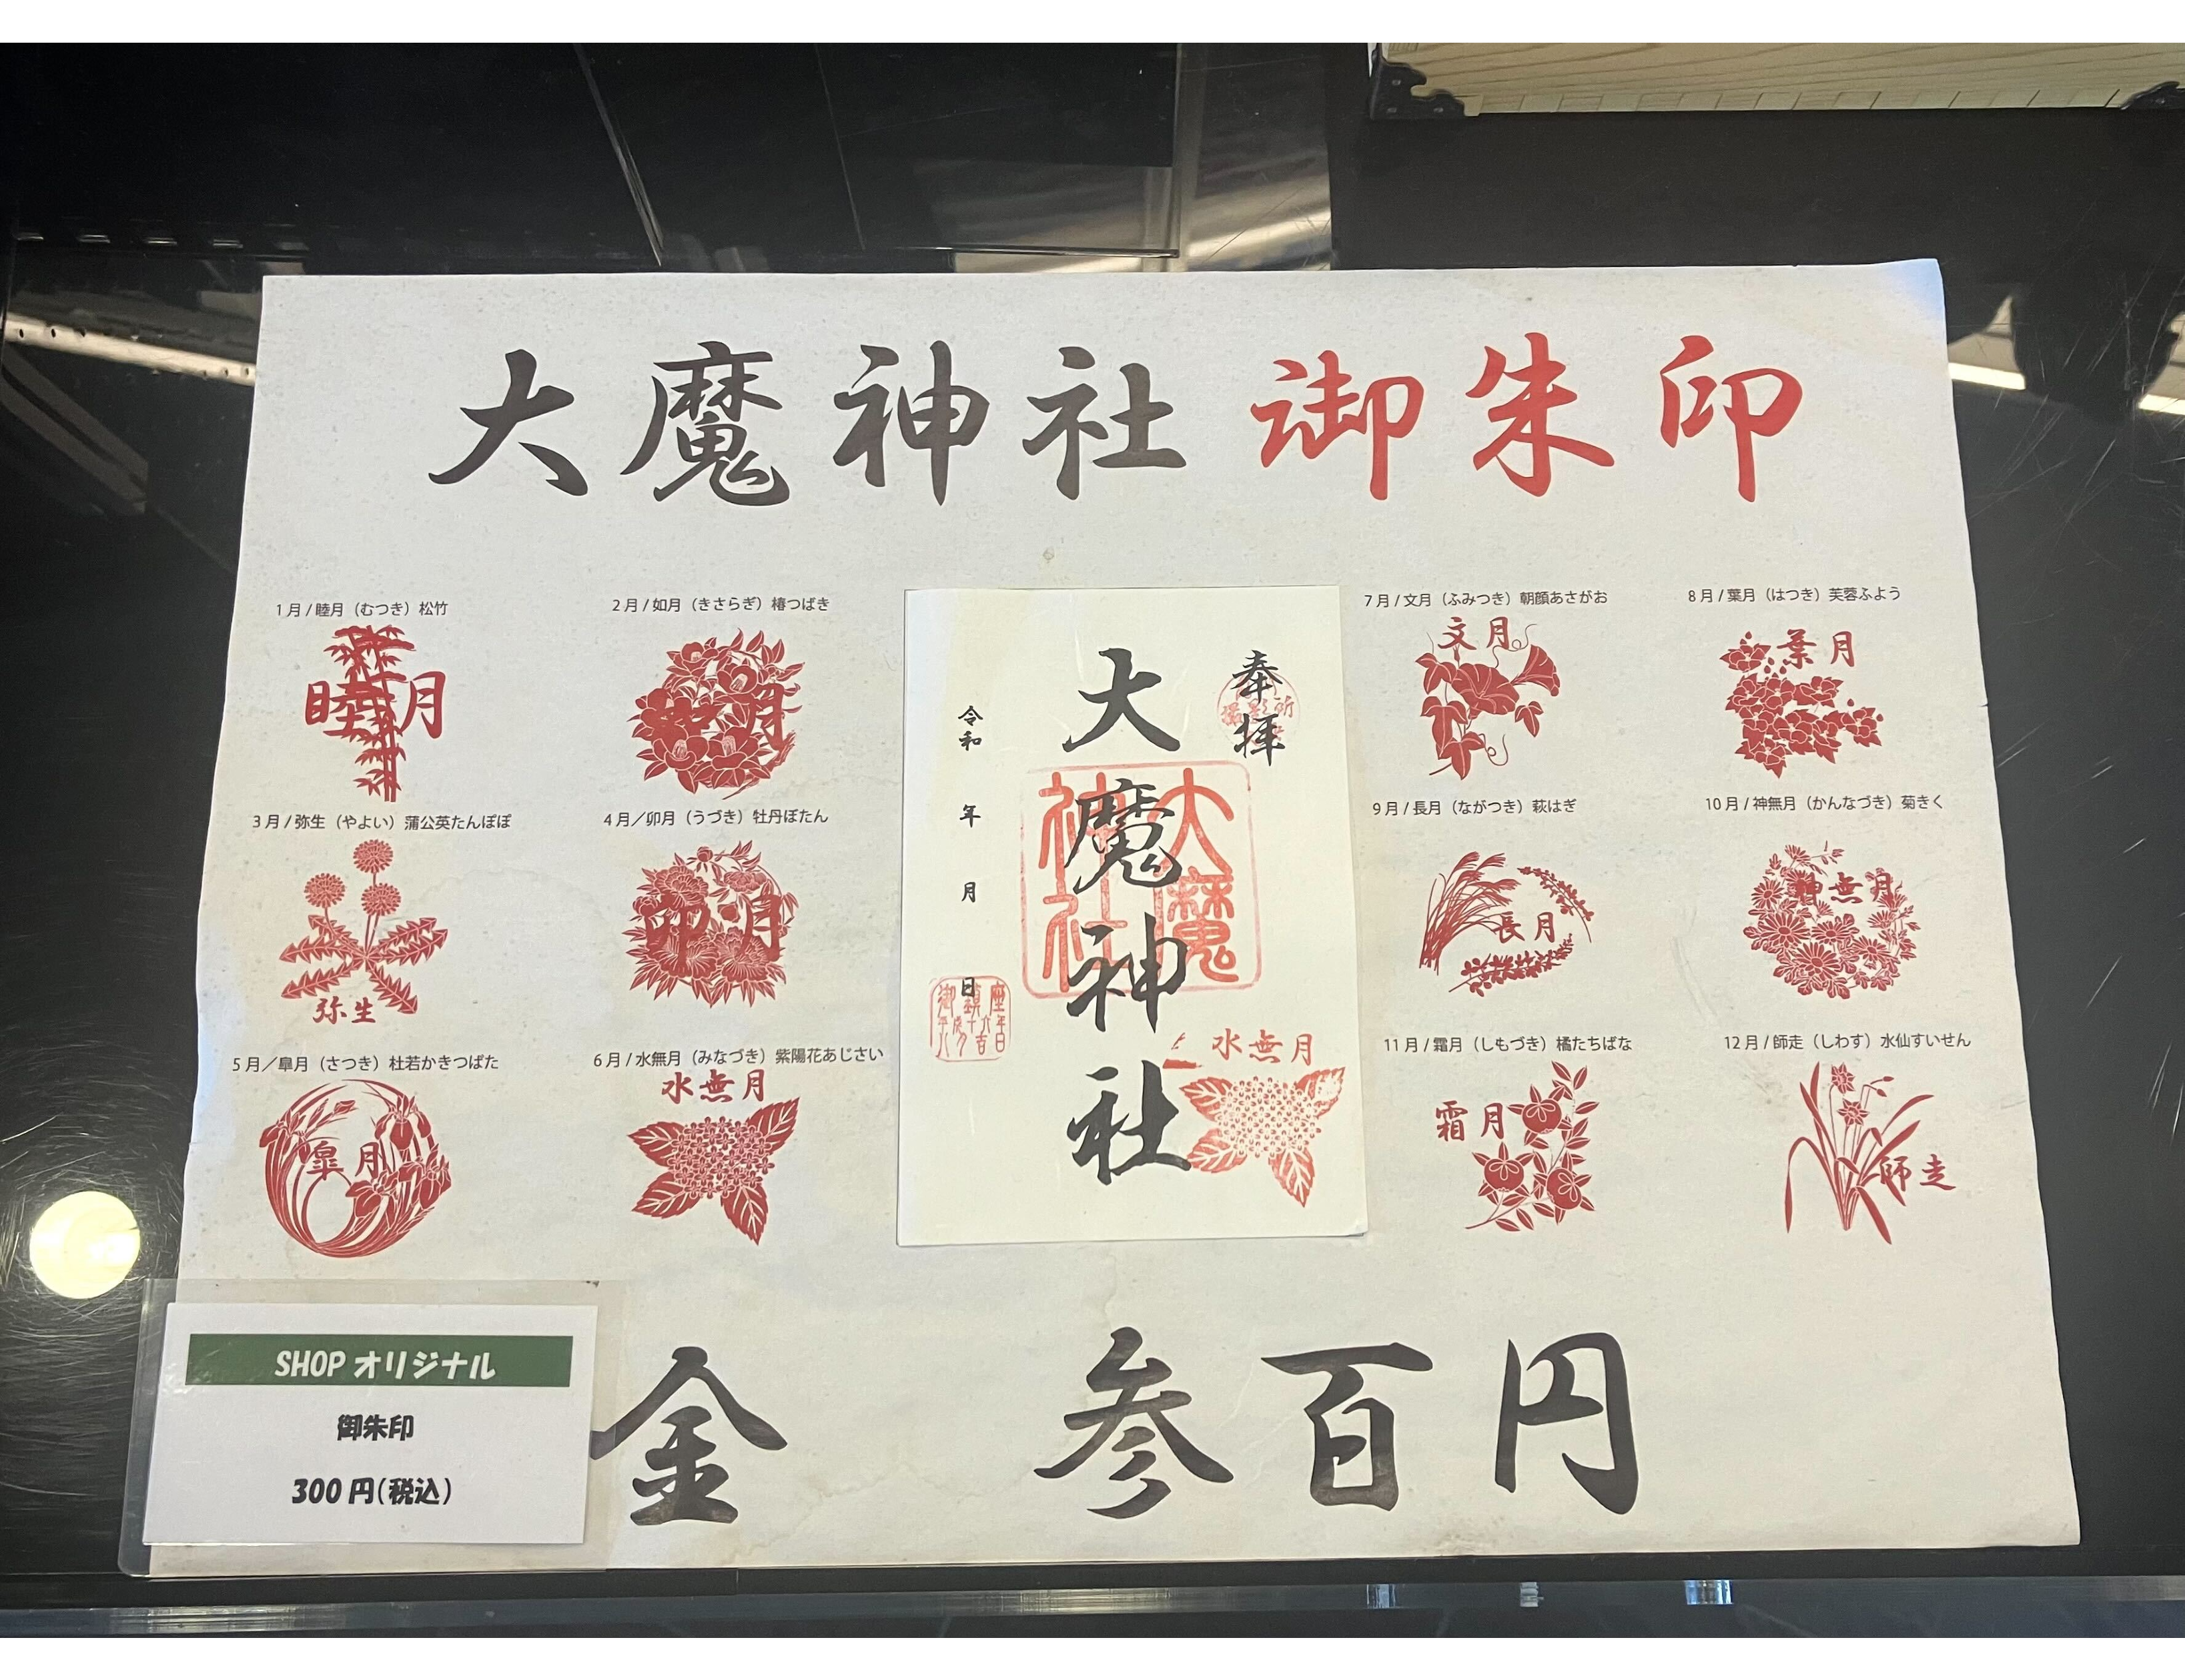 大魔神社 御朱印
1月/睦月（むつき）松竹
睦月
2月/如月（きさらぎ）椿つばき
如月
3月/弥生（やよい）蒲公英たんぽぽ
弥生
4月／卯月（うづき）牡丹ぼたん
卯月
5月／皐月（さつき）杜若かきつばた
皐月
6月/水無月（みなづき）紫陽花あじさい
水無月
奉拝
大魔神社
大魔
神社
令和 年 月 日
水無月
7月/文月（ふみつき）朝顔あさがお
文月
8月/葉月（はつき）芙蓉ふよう
葉月
9月/長月（ながつき）萩はぎ
長月
10月/神無月（かんなづき）菊きく
神無月
11月/霜月（しもづき）橘たちばな
霜月
12月/師走（しわす）水仙すいせん
師走
金 参百円
SHOPオリジナル
御朱印
300円(税込)